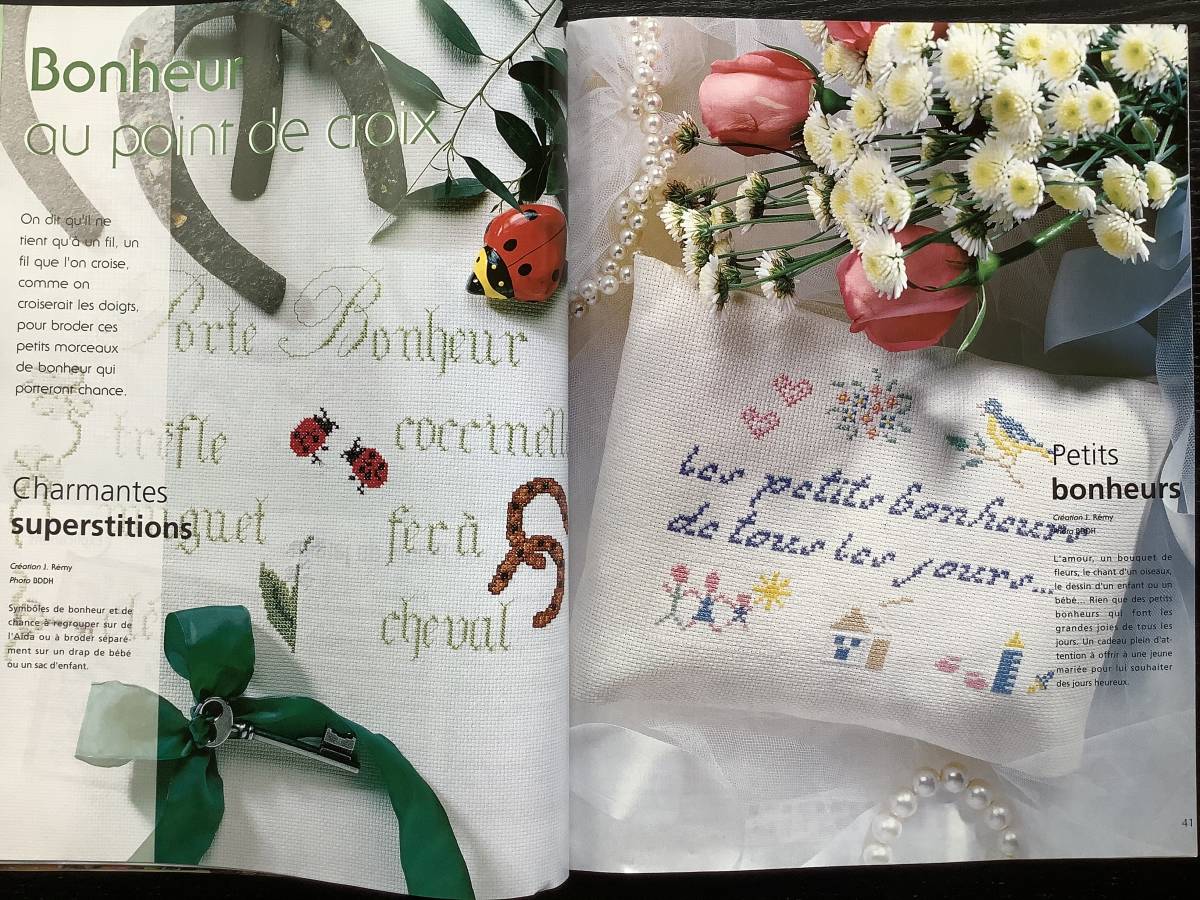 Bonheur
au point de croix
On dit qu'il ne
tient qu'à un fil, un
fil que l'on croise,
comme on
croiserait les doigts,
pour broder ces
petits morceaux
de bonheur qui
porteront chance.
Porte Bonheur
trèfle
coccinell
muguet
fer à
cheval
Charmantes
superstitions
Création J. Rémy
Photo BDDH
Symbôles de bonheur et de
chance à regrouper sur de
l'Aïda ou à broder séparé-
ment sur un drap de bébé
ou un sac d'enfant.
Les petits bonheurs
de tous les jours...
Petits
bonheurs
Création J. Rémy
Photo BDDH
L'amour, un bouquet de
fleurs, le chant d'un oiseaux,
le dessin d'un enfant ou un
bébé... Rien que des petits
bonheurs qui font les
grandes joies de tous les
jours. Un cadeau plein d'at-
tention à offrir à une jeune
mariée pour lui souhaiter
des jours heureux.
41